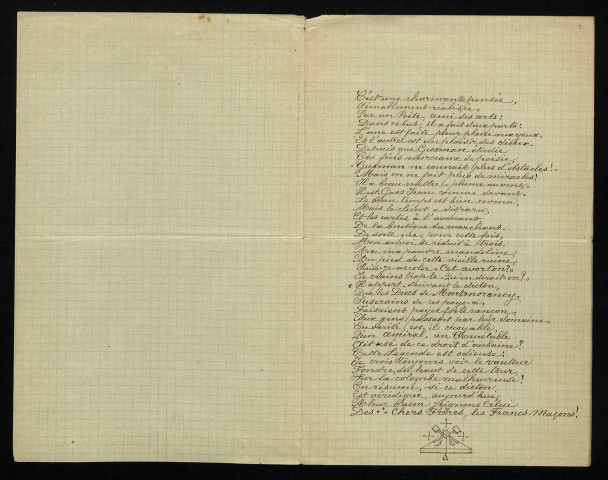 C'est une charmante pensée,
Aimablement réalisée,
Par un Poète ami des arts:
Dans ce but, il a fait deux parts:
L'une est faite pour plaire aux yeux,
Et l'autre est un plaisir des
Depuis que Gusman étudie
Ces fins morceaux de poésie,
"Gusman ne connaît plus d'obstacles!"
Mais on ne fait plus de miracles!
Il a beau mettre plume au vent,
Jean devant
Le beau temps est bien revenu,
Mais le client a disparu,
Et les cartes à l'avenant,
De la boutique du marchand.
De sorte que, pour cette fois,
Mon envoi se réduit à trois.
Avec ma pauvre mandoline
Au pied de cette vieille ruine,
Puis-je accoler "Cet avorton?"
Je crains trop le: Qu'en dira-t-on?
Rapport, suivant le dicton,
Que les Ducs de Montmorency,
Suzerains de ces pays-ci,
Faisaient payer forte rançon
Aux gens passant par leur domaine.
En vérité, est-il croyable,
Qu'un amiral, un Connétable
Ait usé de ce droit d'aubaine?
Cette Légende est odieuse:
Je crois toujours voir le vautour
Fondre, du haut de cette tour,
Sur la colombe malheureuse!
En résumé, si ce dicton,
Est véridique aujourd'hui,
A leur Blason joignons Celui
Des Chers Frères, les Francs Maçons!